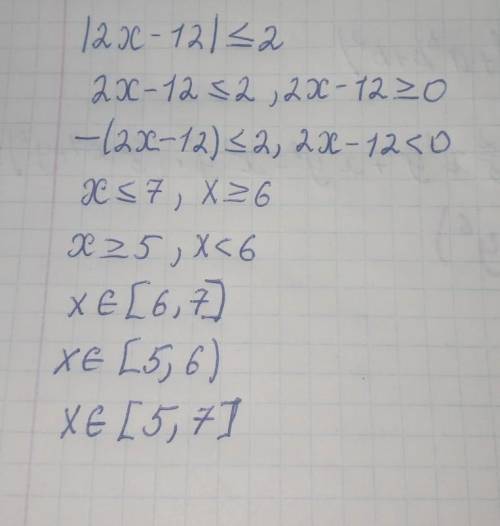 |2x-12| ≤ 2
2x-12 ≤ 2 , 2x-12 ≥ 0
-(2x-12) ≤ 2, 2x-12 < 0
x ≤ 7 , x ≥ 6
x ≥ 5 , x < 6
x ∈ [6, 7]
x ∈ [5, 6)
x ∈ [5, 7]